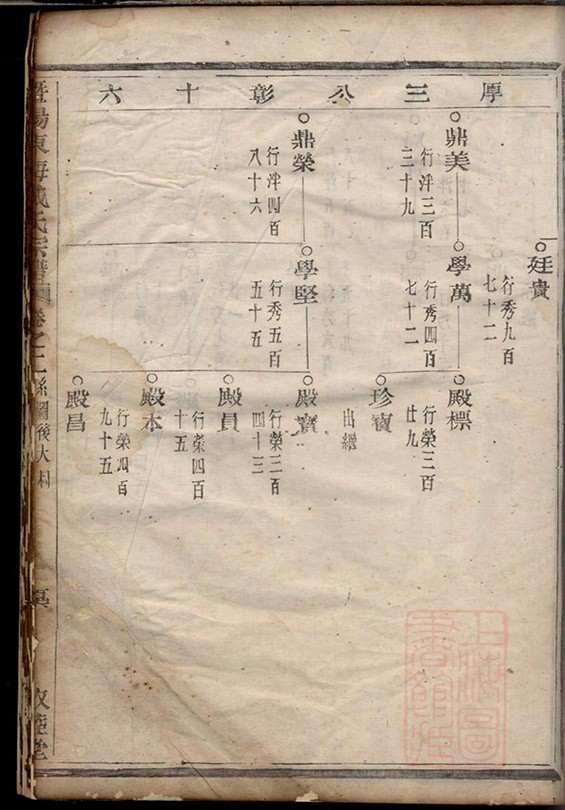 厚三公彰十六
廷貴
行秀九百
七十二
鼎美
行泮三百
三十九
學萬
行秀四百
七十二
殿標
行榮三百
廿九
珍寶
出繼
鼎榮
行泮四百
八十六
學堅
行秀五百
五十五
殿寶
行榮三百
四十三
殿員
行榮四百
十五
殿本
行榮四百
九十五
殿昌
暨陽東海
氏宗譜
卷之二
系圖後大村
上海圖書館藏